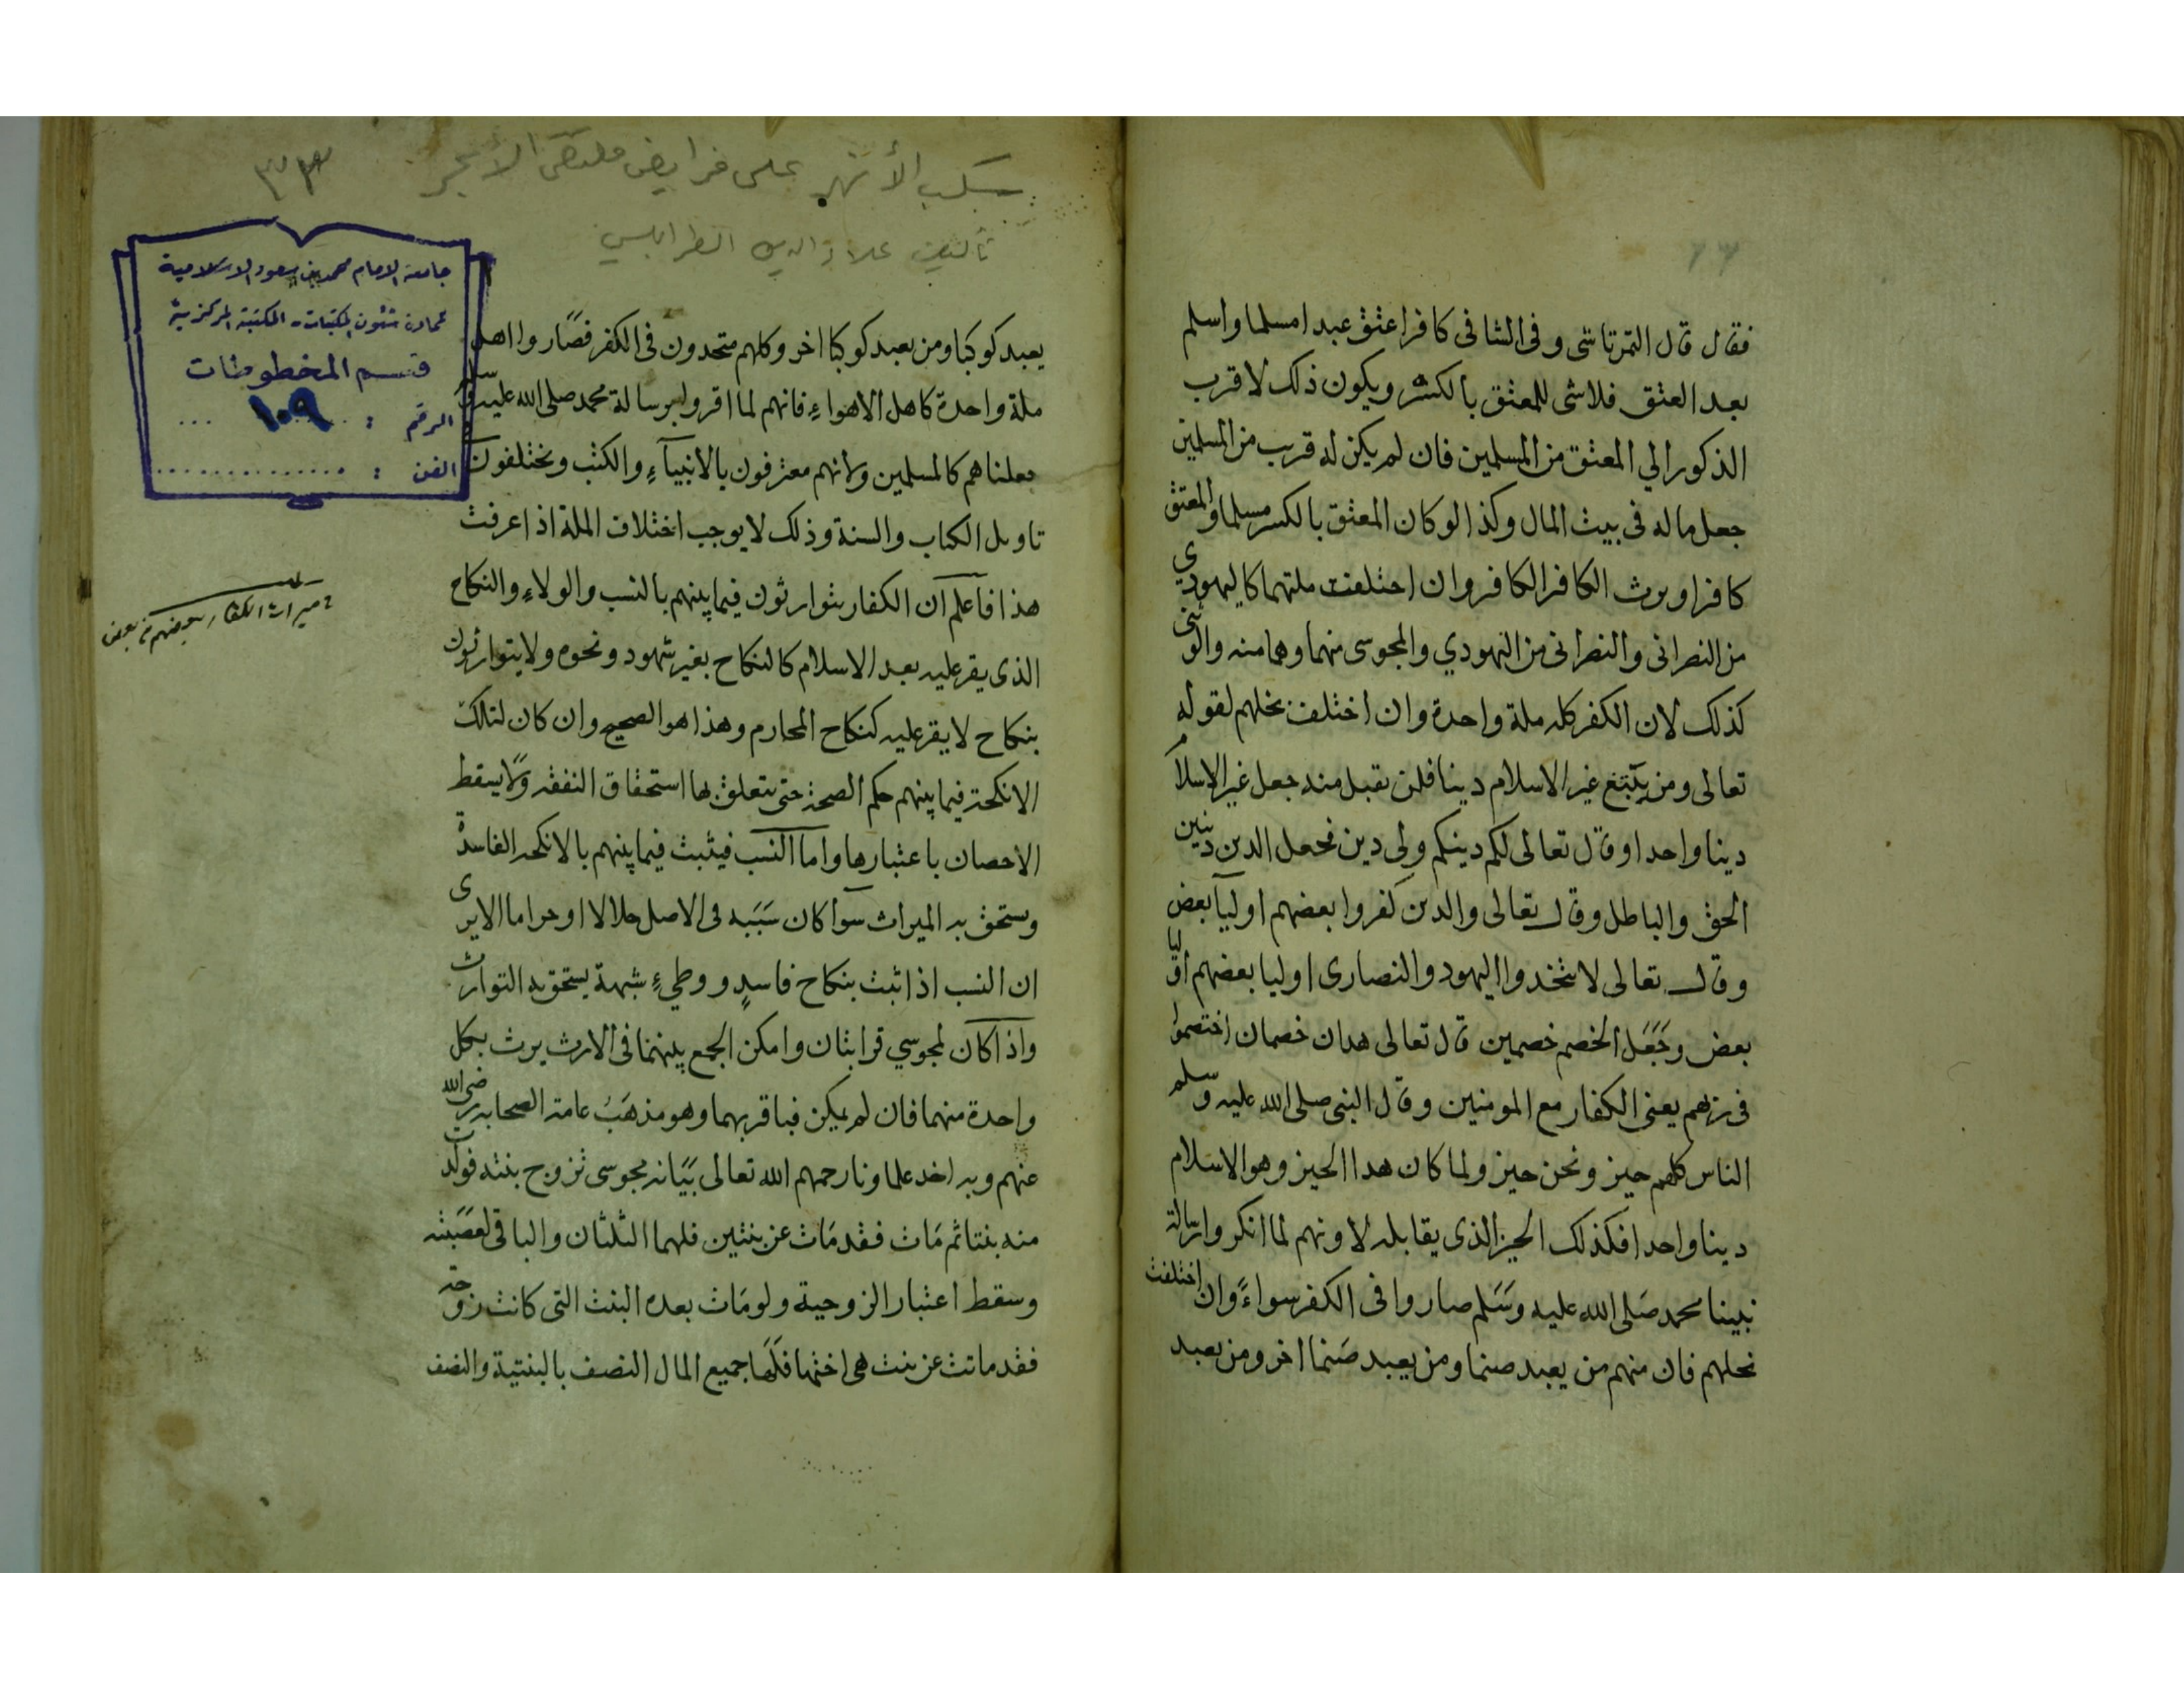 فقال قال التمرتاشى وفى الشافى كافر اعتق عبدا مسلما واسلم
بعد العتق فلاشى للمعتق بالكسر ويكون ذلك لاقرب
الذكور الي المعتق من المسلمين فان لم يكن له قريب من المسلمين
جعل ماله فى بيت المال وكذا لوكان المعتق بالكسر مسلما والمعتق
كافرا ويرث الكافر الكافر وان اختلفت ملتهما كاليهودي
من النصرانى والنصرانى من اليهودي والمجوسى منهما وهما منه والوثنى
كذلك لان الكفر كله ملة واحدة وان اختلفت نحلهم لقوله
تعالى ومن يبتغ غير الاسلام دينا فلن يقبل منه جعل غير الاسلام
دينا واحدا وقال تعالى لكم دينكم ولى دين فجعل الدين دينين
الحق والباطل وقال تعالى والدين كفروا بعضهم اوليآ بعض
وقال تعالى لا تتخدوا اليهود والنصارى اوليا بعضهم اوليا
بعض وجعل الخصم خصمين قال تعالى هدان خصمان اختصموا
فى ربهم يعنى الكفار مع المومنين وقال النبى صلى الله عليه وسلم
الناس كلهم حيز ونحن حيز ولما كان هدا الحيز وهو الاسلام
دينا واحدا فكذلك الحيز الذى يقابله لا ونهم لما انكروا رسالة
نبينا محمد صلى الله عليه وسلم صاروا فى الكفر سواءً وان اختلفت
نحلهم فان منهم من يعبد صنما ومن يعبد صنما اخر ومن يعبد
سكب الأنهر على فرايض ملتقى الأبحر
٣٢٣
تأليف علاء الدين الطرابلسي
جامعة الامام محمد بن سعود الاسلامية
عمادة شئون المكتبات - المكتبة المركزية
قسم المخطوطات
الرقم : ١٠٩
الفن :
يعبد كوكبا ومن يعبد كوكبا اخر وكلهم متحدون فى الكفر فصاروا اهل
ملة واحدة كاهل الاهواءِ فانهم لما اقروا برسالة محمد صلى الله عليه وسلم
جعلناهم كالمسلمين ولانهم معترفون بالانبيآءِ والكتب ويختلفون
تاويل الكتاب والسنة وذلك لا يوجب اختلاف الملة اذا عرفت
هذا فاعلم ان الكفار يتوارثون فيما بينهم بالنسب والولاءِ والنكاح
الذى يقر عليه بعد الاسلام كالنكاح بغير شهود ونحوه ولا يتوارثون
بنكاح لا يقر عليه كنكاح المحارم وهذا هو الصحيح وان كان لتلك
الانكحة فيما بينهم حكم الصحة حتى يتعلق بها استحقاق النفقة ولا يسقط
الاحصان باعتبارها واما النسب فيثبت فيما بينهم بالانكحة الفاسدة
ويستحق به الميراث سوآ كان سببه فى الاصل حلالا او حراما الا يرى
ان النسب اذا ثبت بنكاح فاسدٍ و وطيءِ شبهة يستحق به التوارث
واذا كان لمجوسي قرابتان وامكن الجمع بينهما فى الارث يرث بكل
واحدة منهما فان لم يمكن فباقربهما وهو مذهب عامة الصحابة رضى الله
عنهم وبه اخد علماونا رحمهم الله تعالى بيانه مجوسى تزوج بنته فولدت
منه بنتا ثم مات فقد مات عن بنتين فلهما الثلثان والباقى لعصبته
وسقط اعتبار الزوجية ولو مات بعده البنت التى كانت زوجة
فقد ماتت عن بنت هى اختها فلها جميع المال النصف بالبنتية والنصف
ميراث الكفار بعضهم من بعض